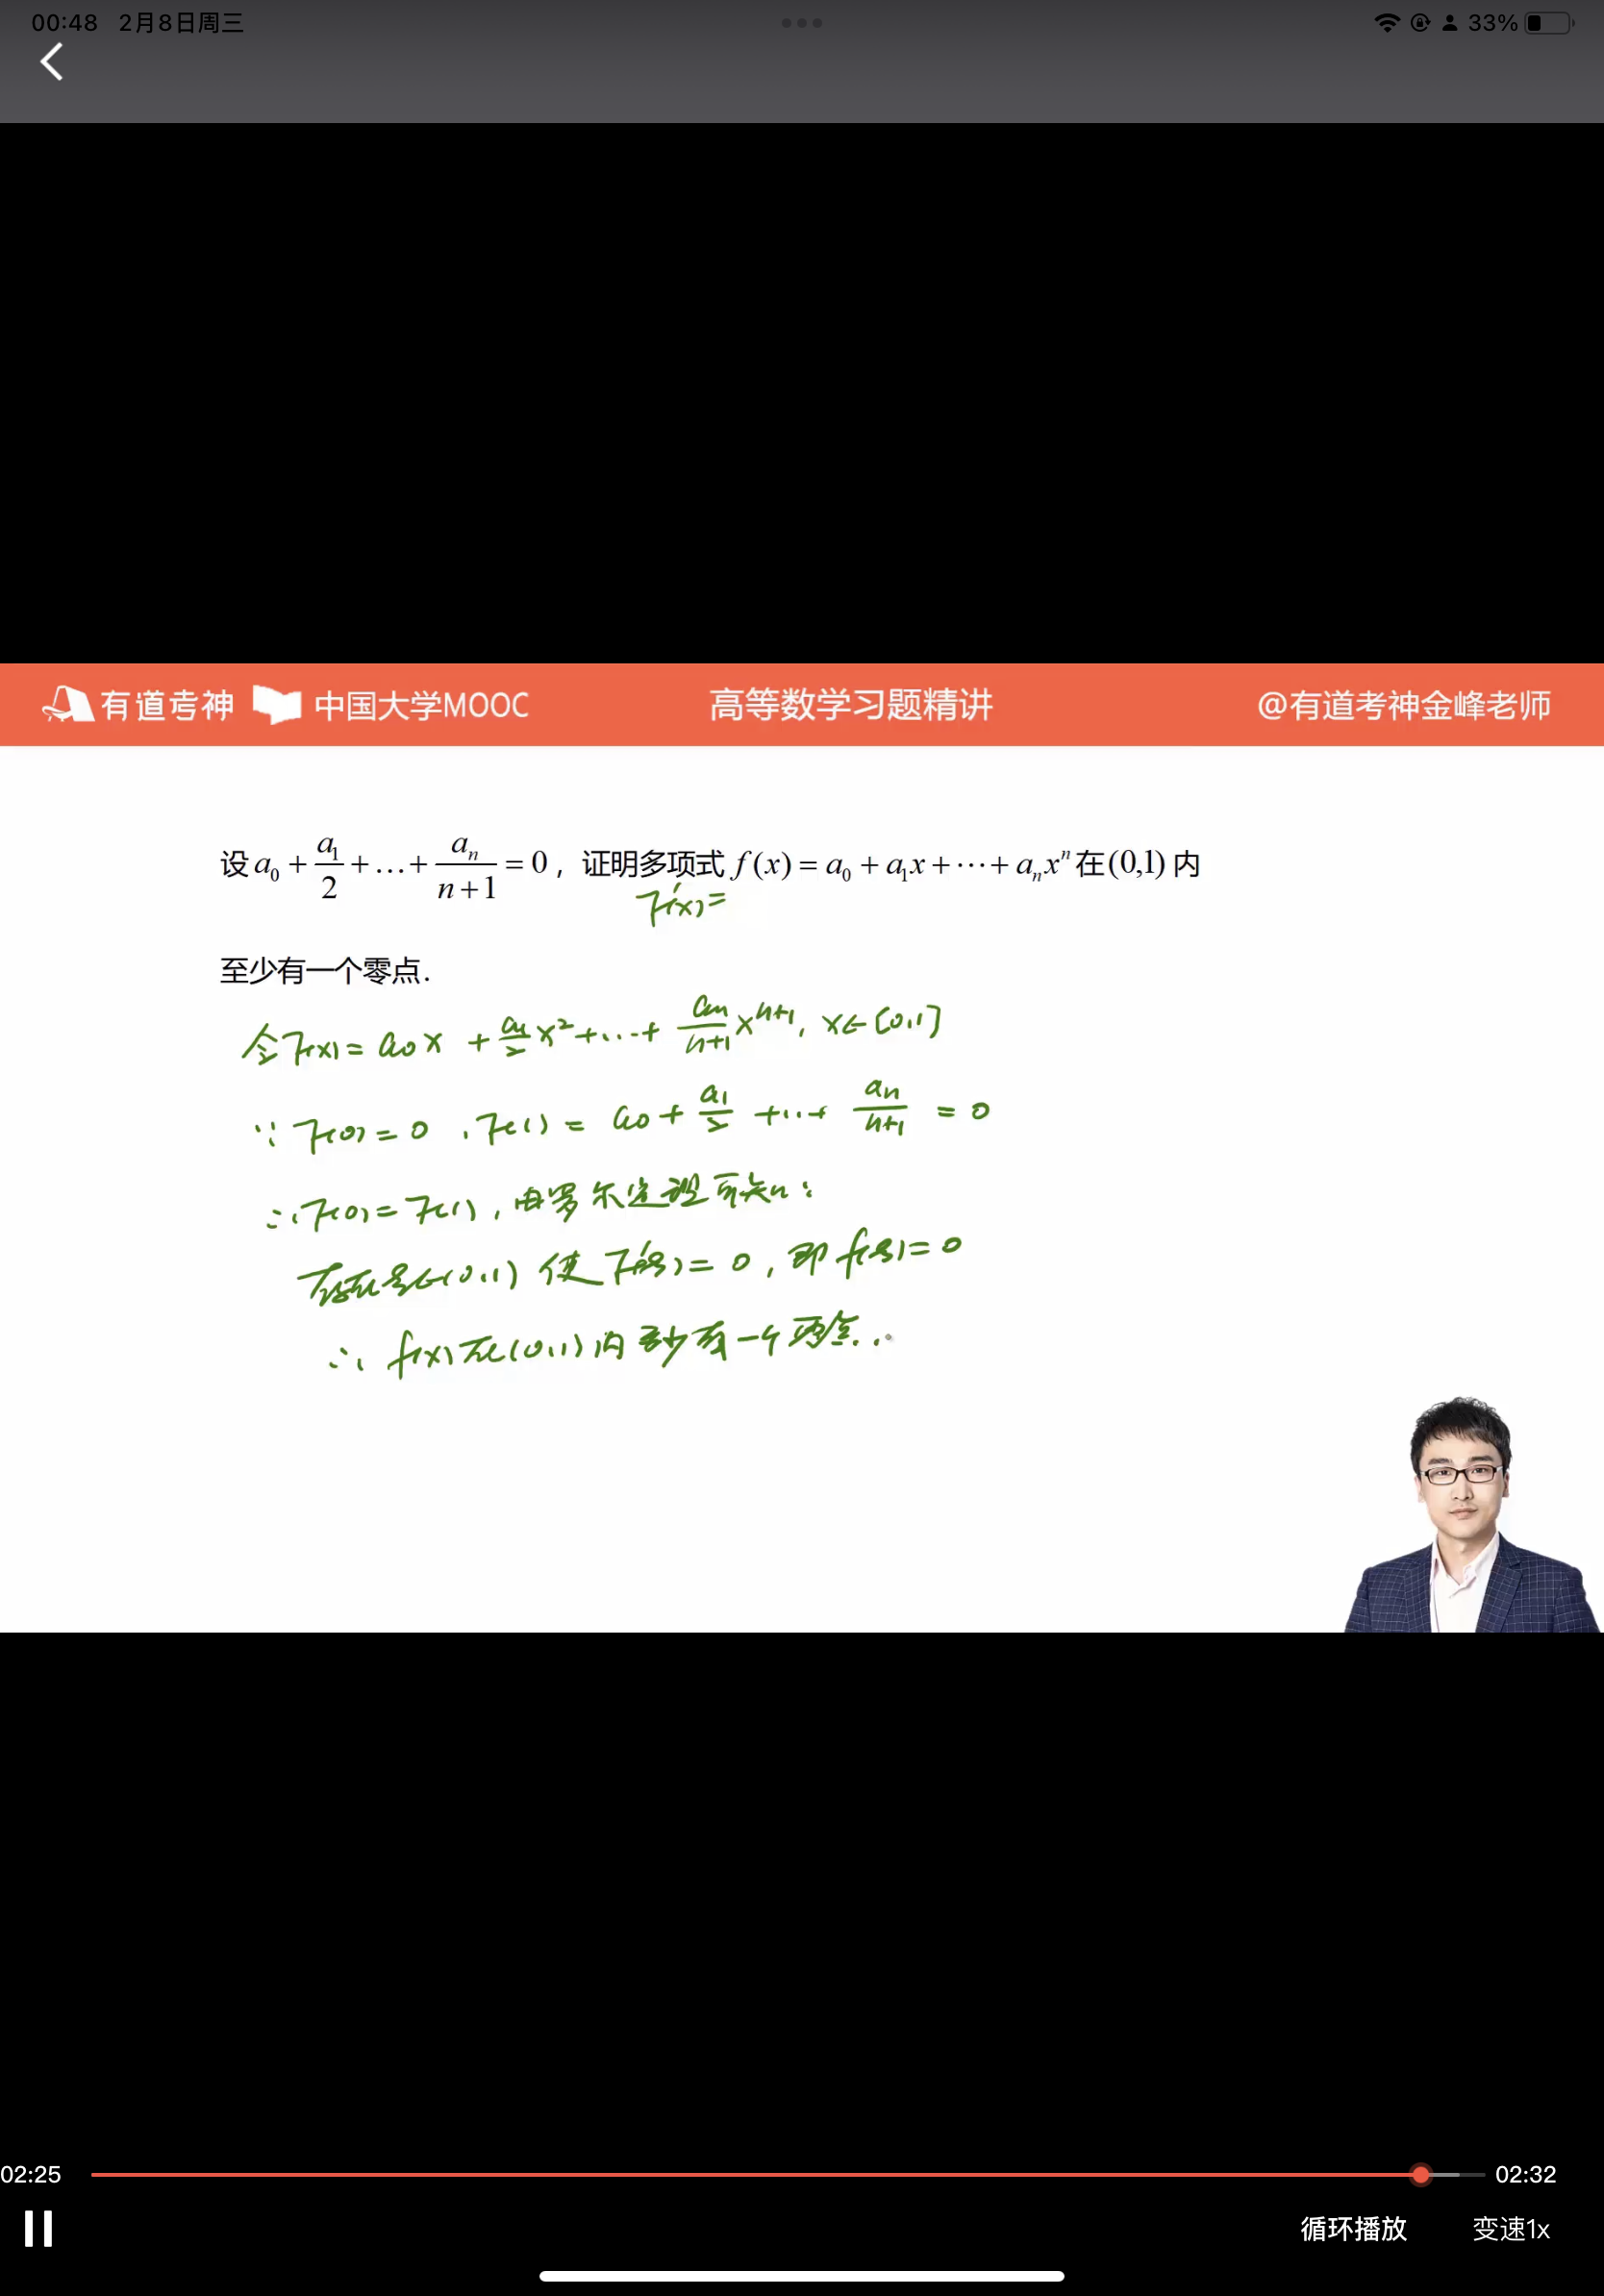 00:48 2月8日周三
33%
有道考神 中国大学MOOC 高等数学习题精讲 @有道考神金峰老师
设 a₀ + a₁/2 + … + aₙ/(n+1) = 0，证明多项式 f(x) = a₀ + a₁x + ⋯ + aₙxⁿ 在(0,1)内
F'(x)=
至少有一个零点.
令F(x)= a₀x + a₁/2 x² + … + aₙ/(n+1) xⁿ⁺¹, x∈[0,1]
∵ F(0)=0, F(1)= a₀ + a₁/2 + … + aₙ/(n+1) = 0
∴ F(0)=F(1), 由罗尔定理可知:
存在ξ∈(0,1) 使F'(ξ)=0, 即f(ξ)=0
∴ f(x)在(0,1)内至少有一个零点.
02:25 02:32
循环播放 变速1x